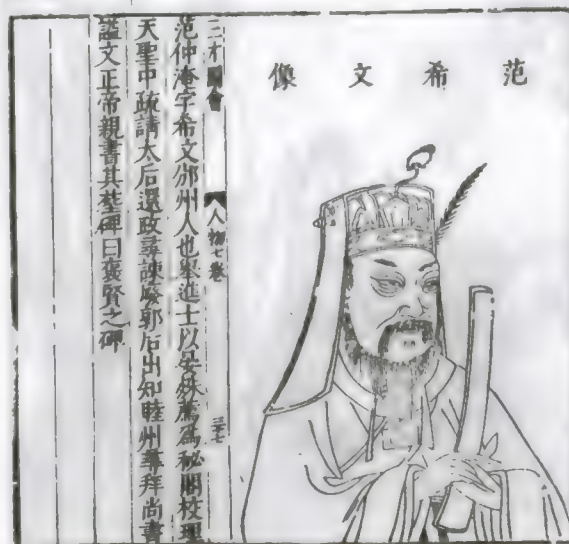 范希文像
三才圖會 人物七卷 三十七
范仲淹字希文邠州人也舉進士以晏殊薦爲秘閣校理
天聖中疏請太后還政尋諫廢郭后出知睦州尋拜尚書
謚文正帝親書其墓碑曰褒賢之碑